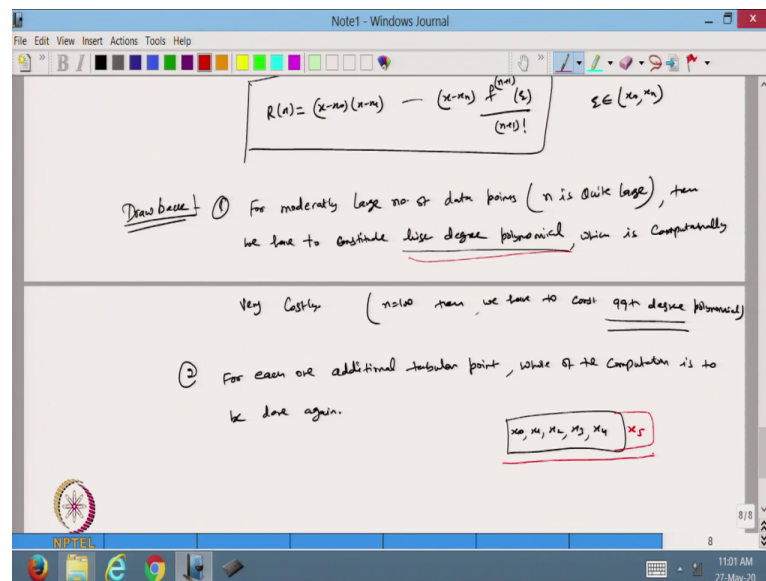 Note1 - Windows Journal
File Edit View Insert Actions Tools Help
R(x) = (x-x0)(x-x1) — (x-xn) f^(n+1)(ξ) / (n+1)! ξ∈(x0,xn)
Drawback! ① For moderately large no. of data points (n is Quite large), then
we have to constitude high degree polynomial, which is Computationally
Very Costly (n=100 then we have to const 99th degree polynomial)
② For each one additional tabular point, whole of the Computation is to
be done again.
x0, x1, x2, x3, x4 x5
NPTEL
8/8
8
11:01 AM
27-May-20